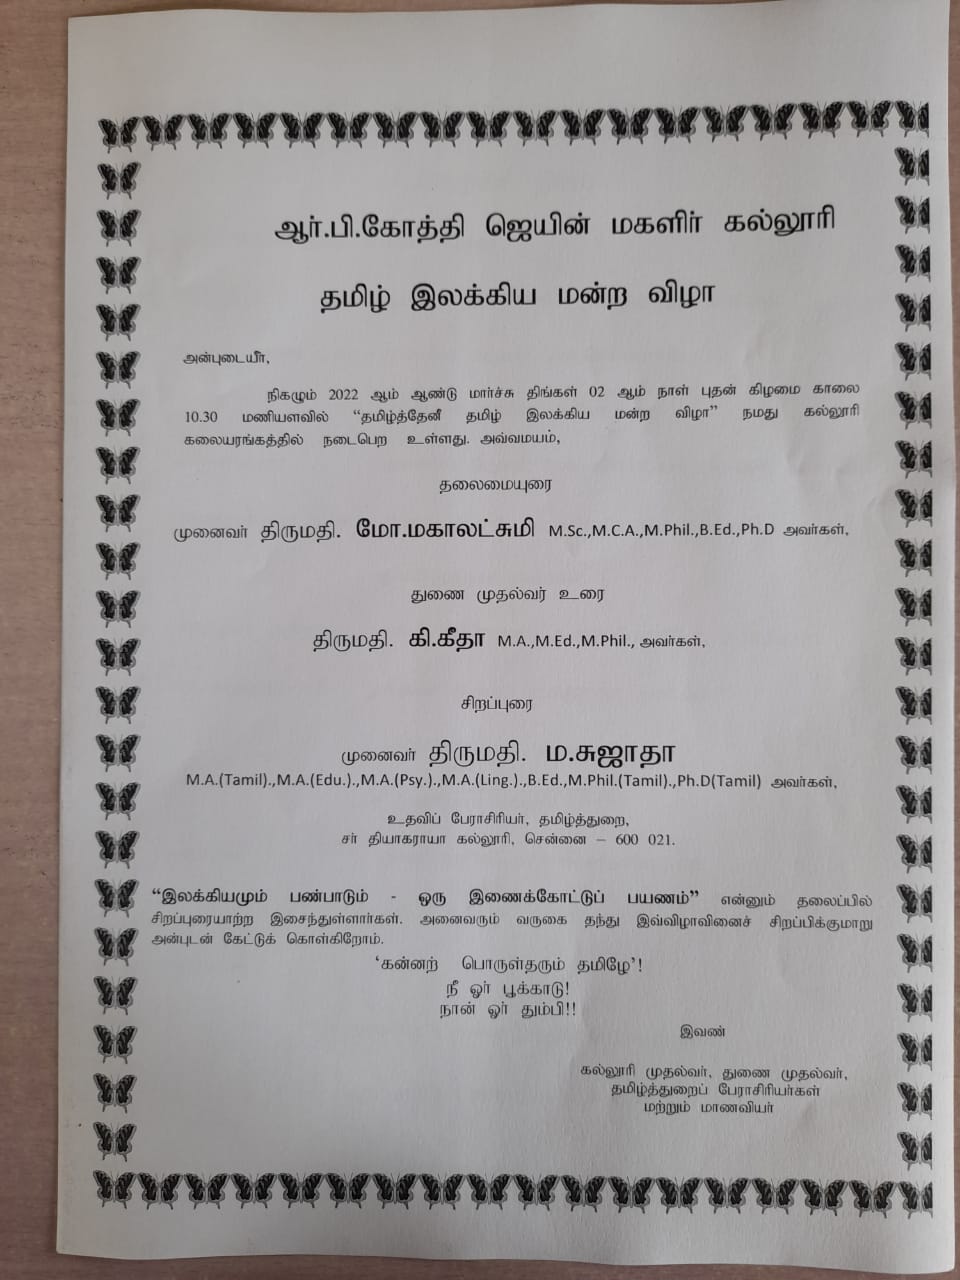 ஆர்.பி.கோத்தி ஜெயின் மகளிர் கல்லூரி
தமிழ் இலக்கிய மன்ற விழா
அன்புடையீர்,
நிகழும் 2022 ஆம் ஆண்டு மார்ச்சு திங்கள் 02 ஆம் நாள் புதன் கிழமை காலை
10.30 மணியளவில் “தமிழ்த்தேனீ தமிழ் இலக்கிய மன்ற விழா” நமது கல்லூரி
கலையரங்கத்தில் நடைபெற உள்ளது. அவ்வமயம்,
தலைமையுரை
முனைவர் திருமதி. மோ.மகாலட்சுமி M.Sc.,M.C.A.,M.Phil.,B.Ed.,Ph.D அவர்கள்,
துணை முதல்வர் உரை
திருமதி. கி.கீதா M.A.,M.Ed.,M.Phil., அவர்கள்,
சிறப்புரை
முனைவர் திருமதி. ம.சுஜாதா
M.A.(Tamil).,M.A.(Edu.).,M.A.(Psy.).,M.A.(Ling.).,B.Ed.,M.Phil.(Tamil).,Ph.D(Tamil) அவர்கள்,
உதவிப் பேராசிரியர், தமிழ்த்துறை,
சர் தியாகராயா கல்லூரி, சென்னை – 600 021.
“இலக்கியமும் பண்பாடும் - ஒரு இணைக்கோட்டுப் பயணம்” என்னும் தலைப்பில்
சிறப்புரையாற்ற இசைந்துள்ளார்கள். அனைவரும் வருகை தந்து இவ்விழாவினைச் சிறப்பிக்குமாறு
அன்புடன் கேட்டுக் கொள்கிறோம்.
‘கன்னற் பொருள்தரும் தமிழே’!
நீ ஓர் பூக்காடு!
நான் ஓர் தும்பி!!
இவண்
கல்லூரி முதல்வர், துணை முதல்வர்,
தமிழ்த்துறைப் பேராசிரியர்கள்
மற்றும் மாணவியர்